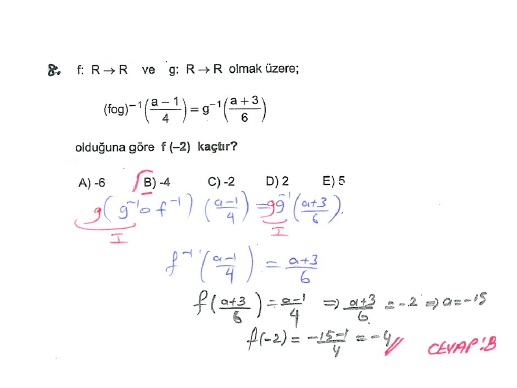 8. f: R → R ve g: R → R olmak üzere;
(fog)⁻¹((a − 1)/4) = g⁻¹((a + 3)/6)
olduğuna göre f (−2) kaçtır?
A) -6 B) -4 C) -2 D) 2 E) 5
g(g⁻¹o f⁻¹) ((a-1)/4) = gg⁻¹((a+3)/6).
I I
f⁻¹((a-1)/4) = (a+3)/6
f((a+3)/6) = (a-1)/4 ⇒ (a+3)/6 = -2 ⇒ a = -15
f(-2) = (-15-1)/4 = -4
CEVAP: B